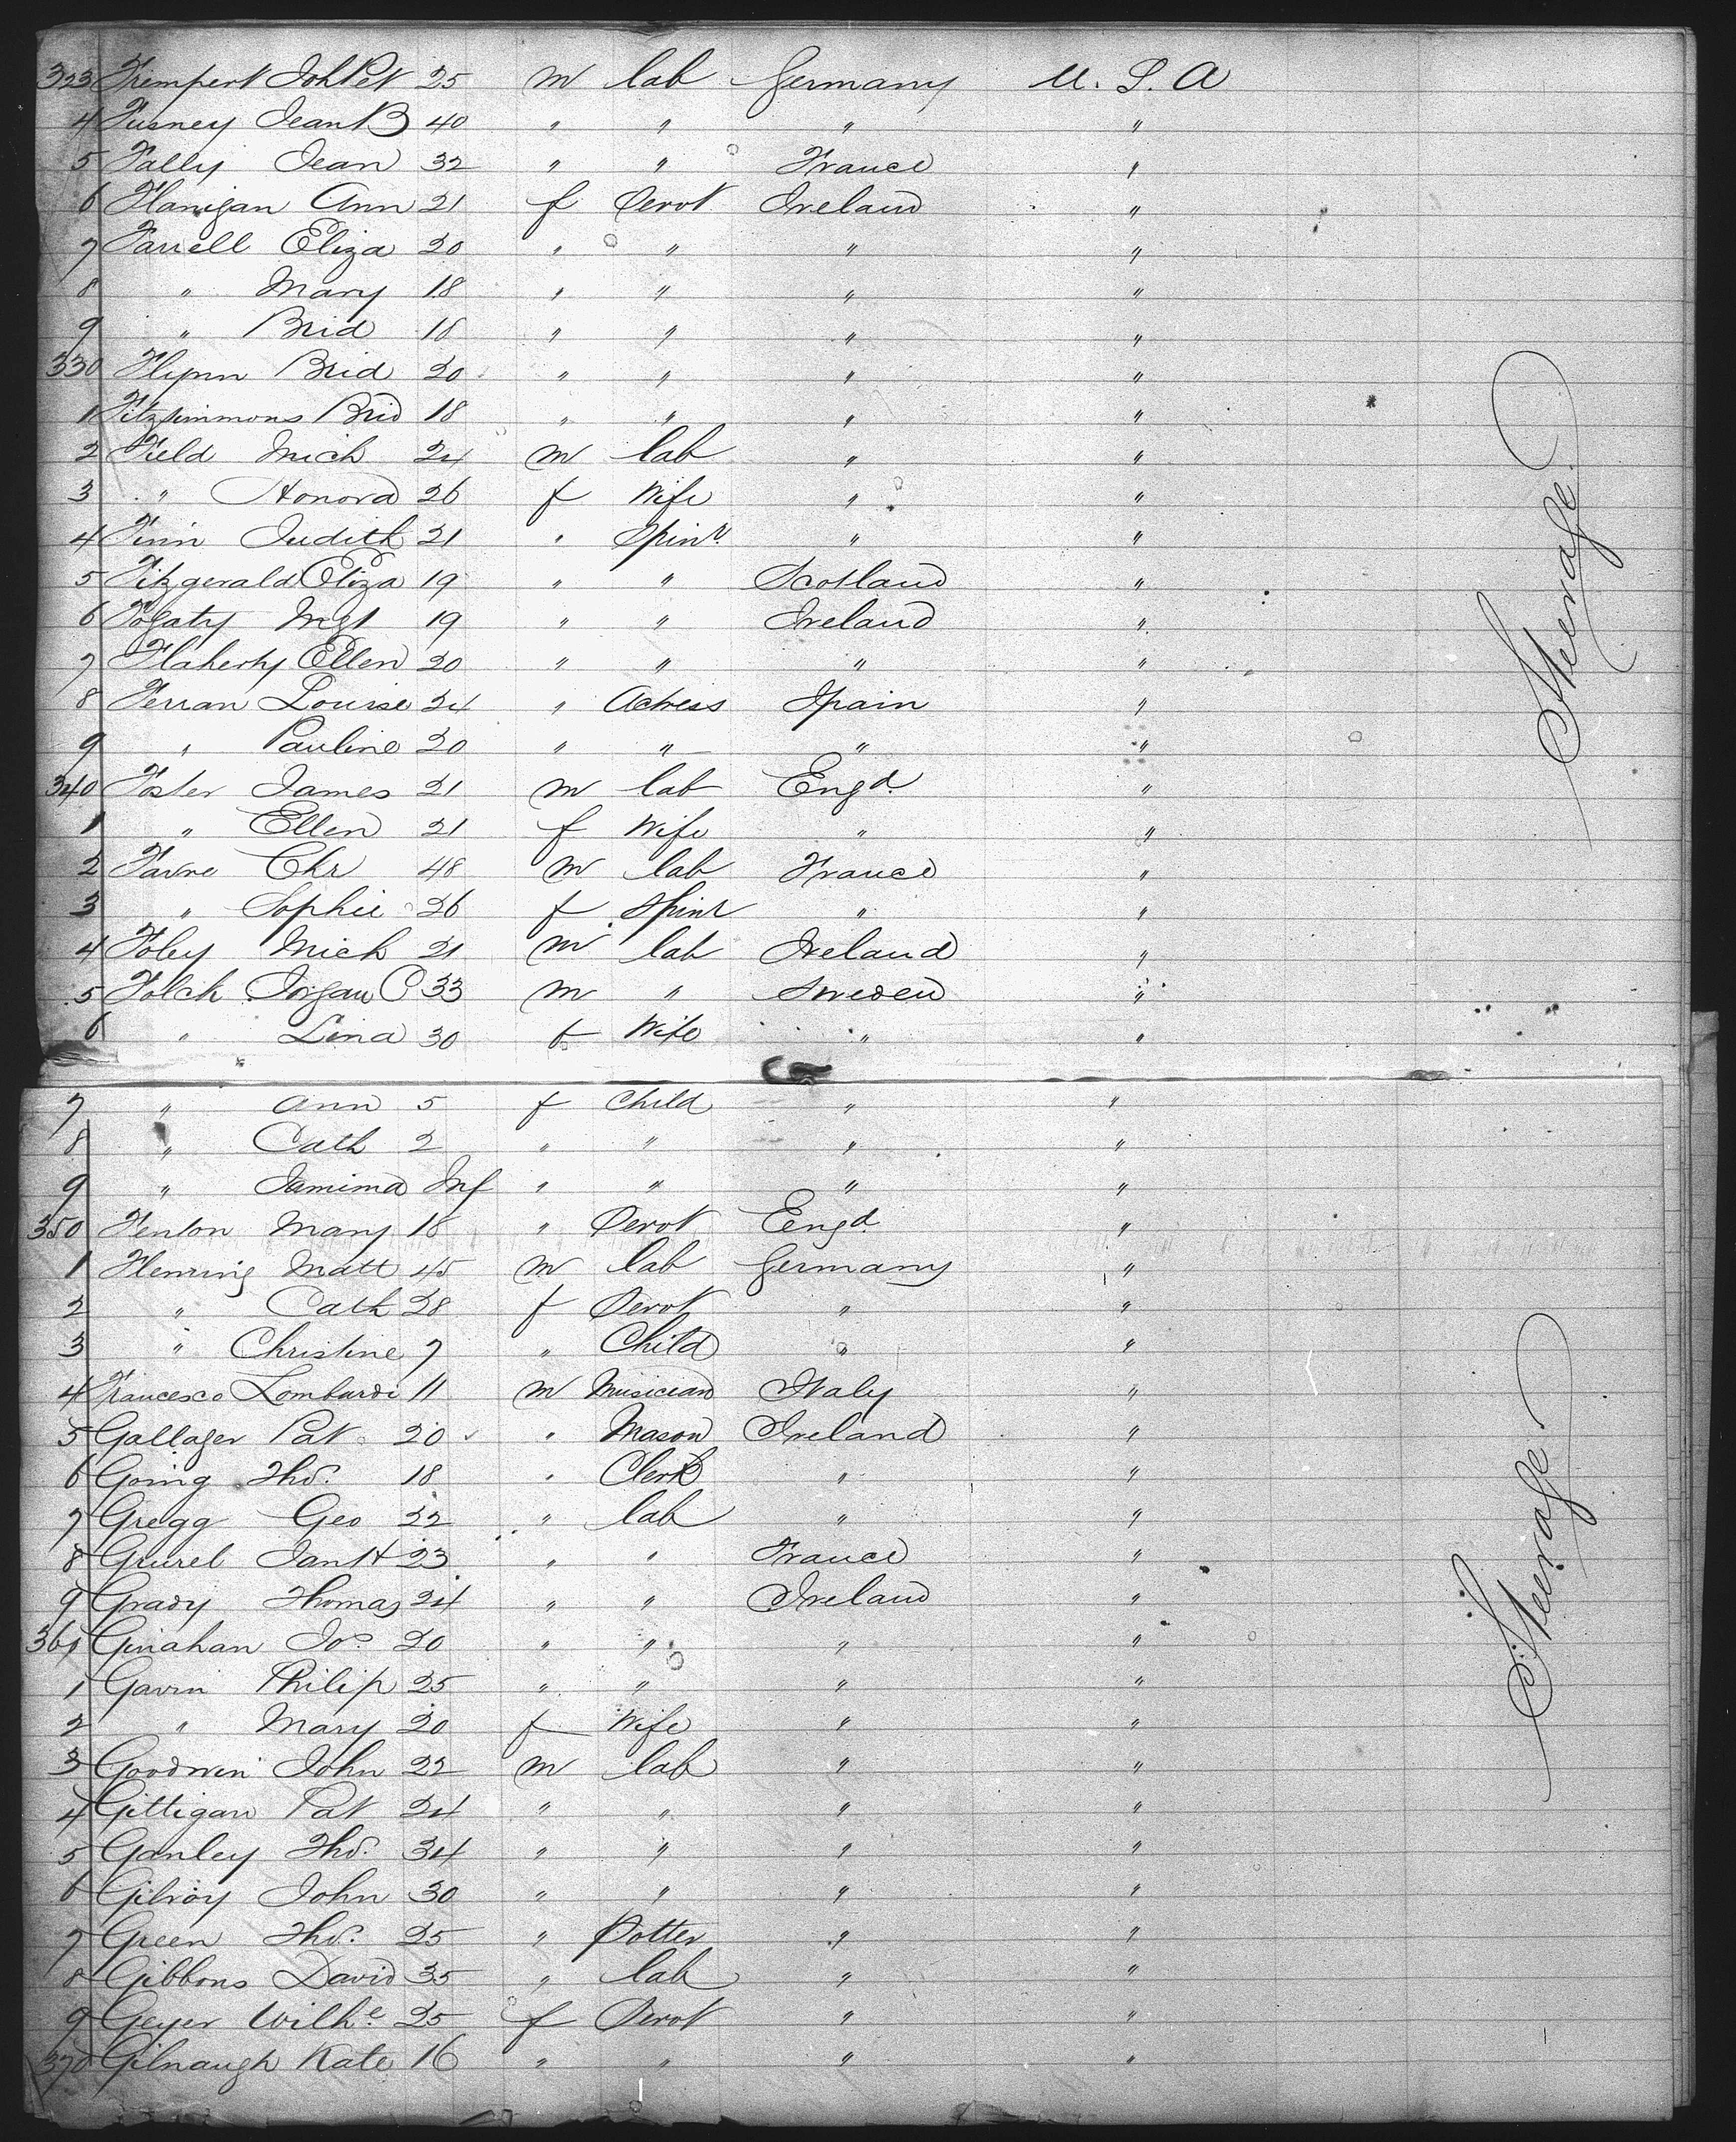 323 Frempert Joh Pet 25 m lab Germany U.S.A
4 Fusney Jean B 40 " " " "
5 Fally Jean 32 " " France "
6 Flanigan Ann 21 f Servt Ireland "
7 Farrell Eliza 20 " " " "
8 " Mary 18 " " " "
9 " Brid 18 " " " "
330 Flynn Brid 20 " " " "
1 Fitzsimmons Brid 18 " " " "
2 Field Mich 24 m lab " "
3 " Honora 26 f Wife " "
4 Finn Judith 21 " Spinr " "
5 Fitzgerald Eliza 19 " " Scotland "
6 Fogaty Mgt 19 " " Ireland "
7 Flaherty Ellen 20 " " " "
8 Ferran Louise 24 " Actress Spain "
9 " Pauline 20 " " " "
340 Foster James 21 m lab Engd. "
1 " Ellen 21 f Wife " "
2 Favre Chr 48 m lab France "
3 " Sophie 26 f Spinr " "
4 Foley Mich 21 m lab Ireland "
5 Folck Jorgan O 33 m " Sweden "
6 " Lina 30 f Wife " "
7 " Ann 5 f Child " "
8 " Cath 2 " " " "
9 " Jamima Inf " " " "
350 Fenton Mary 18 " Servt Eengd. "
1 Flemring Matt 45 m lab Germany "
2 " Cath 28 f Servt " "
3 " Christine 7 " Child " "
4 Francesco Lombardi 11 m Musician Italy "
5 Gallager Pat 20 " Mason Ireland "
6 Going Thos. 18 " Clerk " "
7 Gregg Geo 22 " lab " "
8 Gurel Jan H 23 " " France "
9 Grady Thomas 24 " " Ireland "
360 Ginahan Jos 20 " " " "
1 Gavin Philip 25 " " " "
2 " Mary 20 f Wife " "
3 Goodwin John 22 m lab " "
4 Gittigan Pat 24 " " " "
5 Ganley Thos. 34 " " " "
6 Gilroy John 30 " " " "
7 Green Thos. 25 " Potter " "
8 Gibbons David 35 " lab " "
9 Geyer Wilhe. 25 f Servt " "
370 Gilnaugh Kate 16 " " " "
Steerage
Steerage